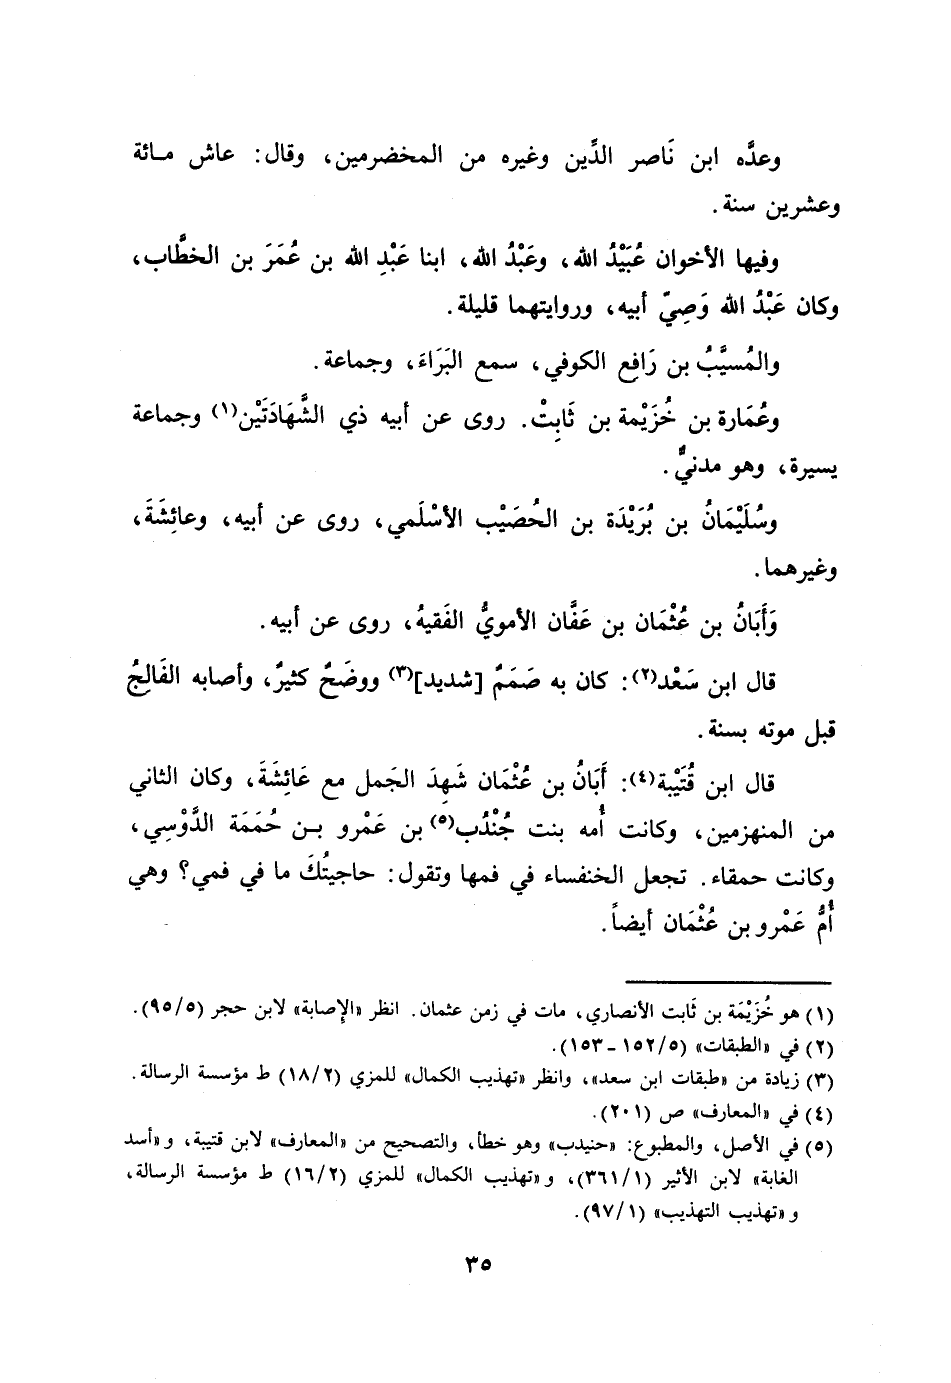 وعدَّه ابن نَاصر الدِّين وغيره من المخضرمين، وقال: عاش مائة
وعشرين سنة.
وفيها الأخوان عُبَيْدُ الله، وعَبْدُ الله، ابنا عَبْدِ الله بن عُمَرَ بن الخطَّاب،
وكان عَبْدُ الله وَصِيّ أبيه، وروايتهما قليلة.
والمُسيَّبُ بن رَافِع الكوفي، سمع البَرَاءَ، وجماعة.
وعُمَارة بن خُزَيْمة بن ثَابِتْ. روى عن أبيه ذي الشَّهَادَتَيْن(١) وجماعة
يسيرة، وهو مدنيٌّ.
وسُلَيْمَانُ بن بُرَيْدَة بن الحُصَيْب الأسْلَمي، روى عن أبيه، وعائِشَةَ،
وغيرهما.
وَأَبَانُ بن عُثْمَان بن عَفَّان الأمويُّ الفَقيهُ، روى عن أبيه.
قال ابن سَعْد(٢): كان به صَمَمٌ [شديد](٣) ووضَحٌ كثيرٌ، وأصابه الفَالِجُ
قبل موته بسنة.
قال ابن قُتَيْبة(٤): أَبَانُ بن عُثْمَان شَهِدَ الجَمل مع عَائِشَةَ، وكان الثاني
من المنهزمين، وكانت أُمه بنت جُنْدُب(٥) بن عَمْرو بن حُمَمَة الدَّوْسِي،
وكانت حمقاء. تجعل الخنفساء في فمها وتقول: حاجيتُكَ ما في فمي؟ وهي
أُمُّ عَمْرو بن عُثْمَان أيضاً.
(١) هو خُزَيْمَة بن ثَابت الأنصاري، مات في زمن عثمان. انظر «الإصابة» لابن حجر (٩٥/٥).
(٢) في «الطبقات» (١٥٢/٥ - ١٥٣).
(٣) زيادة من «طبقات ابن سعد»، وانظر «تهذيب الكمال» للمزي (١٨/٢) ط مؤسسة الرسالة.
(٤) في «المعارف» ص (٢٠١).
(٥) في الأصل، والمطبوع: «حنيدب» وهو خطأ، والتصحيح من «المعارف» لابن قتيبة، و«أسد
الغابة» لابن الأثير (٣٦١/١)، و«تهذيب الكمال» للمزي (١٦/٢) ط مؤسسة الرسالة،
و«تهذيب التهذيب» (٩٧/١).
٣٥